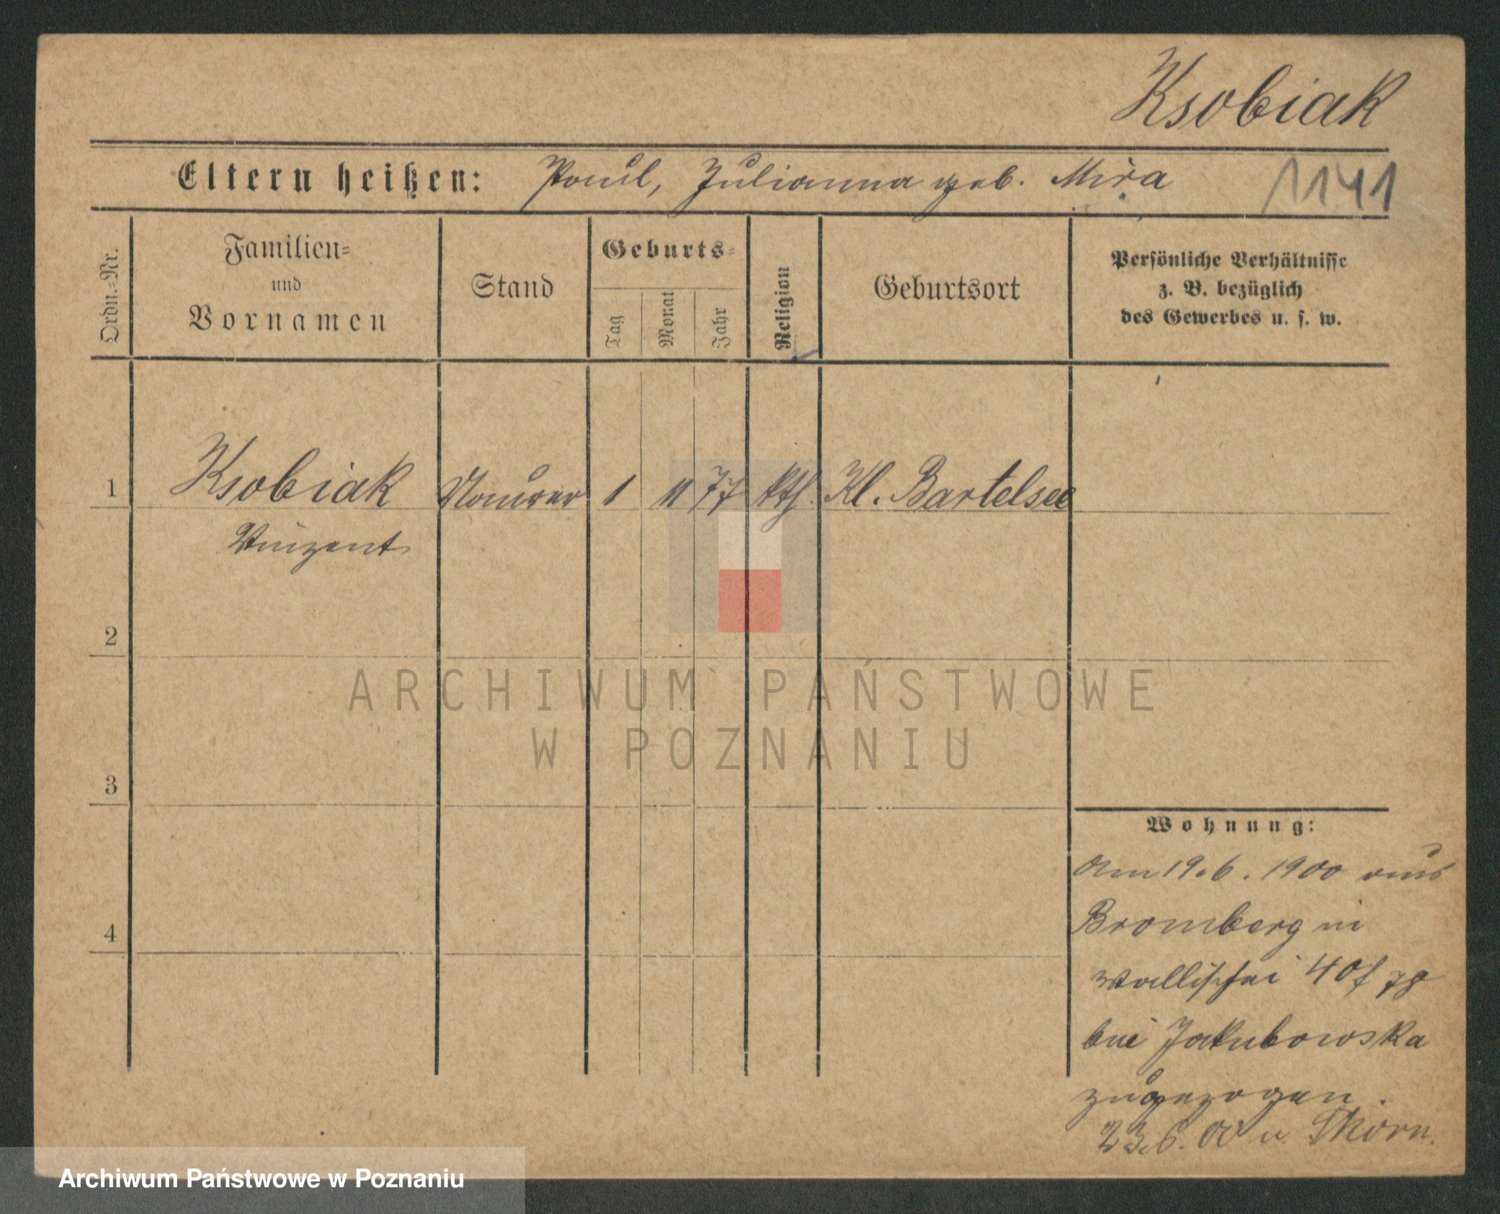 Ksobiak
Eltern heißen: Paul, Julianna geb. Mira 1141
Ordn.-Nr.
Familien-
und
Vornamen
Stand
Geburts-
Tag
Monat
Jahr
Religion
Geburtsort
Persönliche Verhältnisse
z. B. bezüglich
des Gewerbes u. s. w.
1 Ksobiak Maurer 1 11 77 kth. Kl. Bartelsee
Vinzent
2
3
4
Wohnung:
Am 19.6.1900 aus
Bromberg in
Wallischei 40
bei Jakubowska
zugezogen.
23.6.00 n.
ARCHIWUM PAŃSTWOWE
W POZNANIU
Archiwum Państwowe w Poznaniu